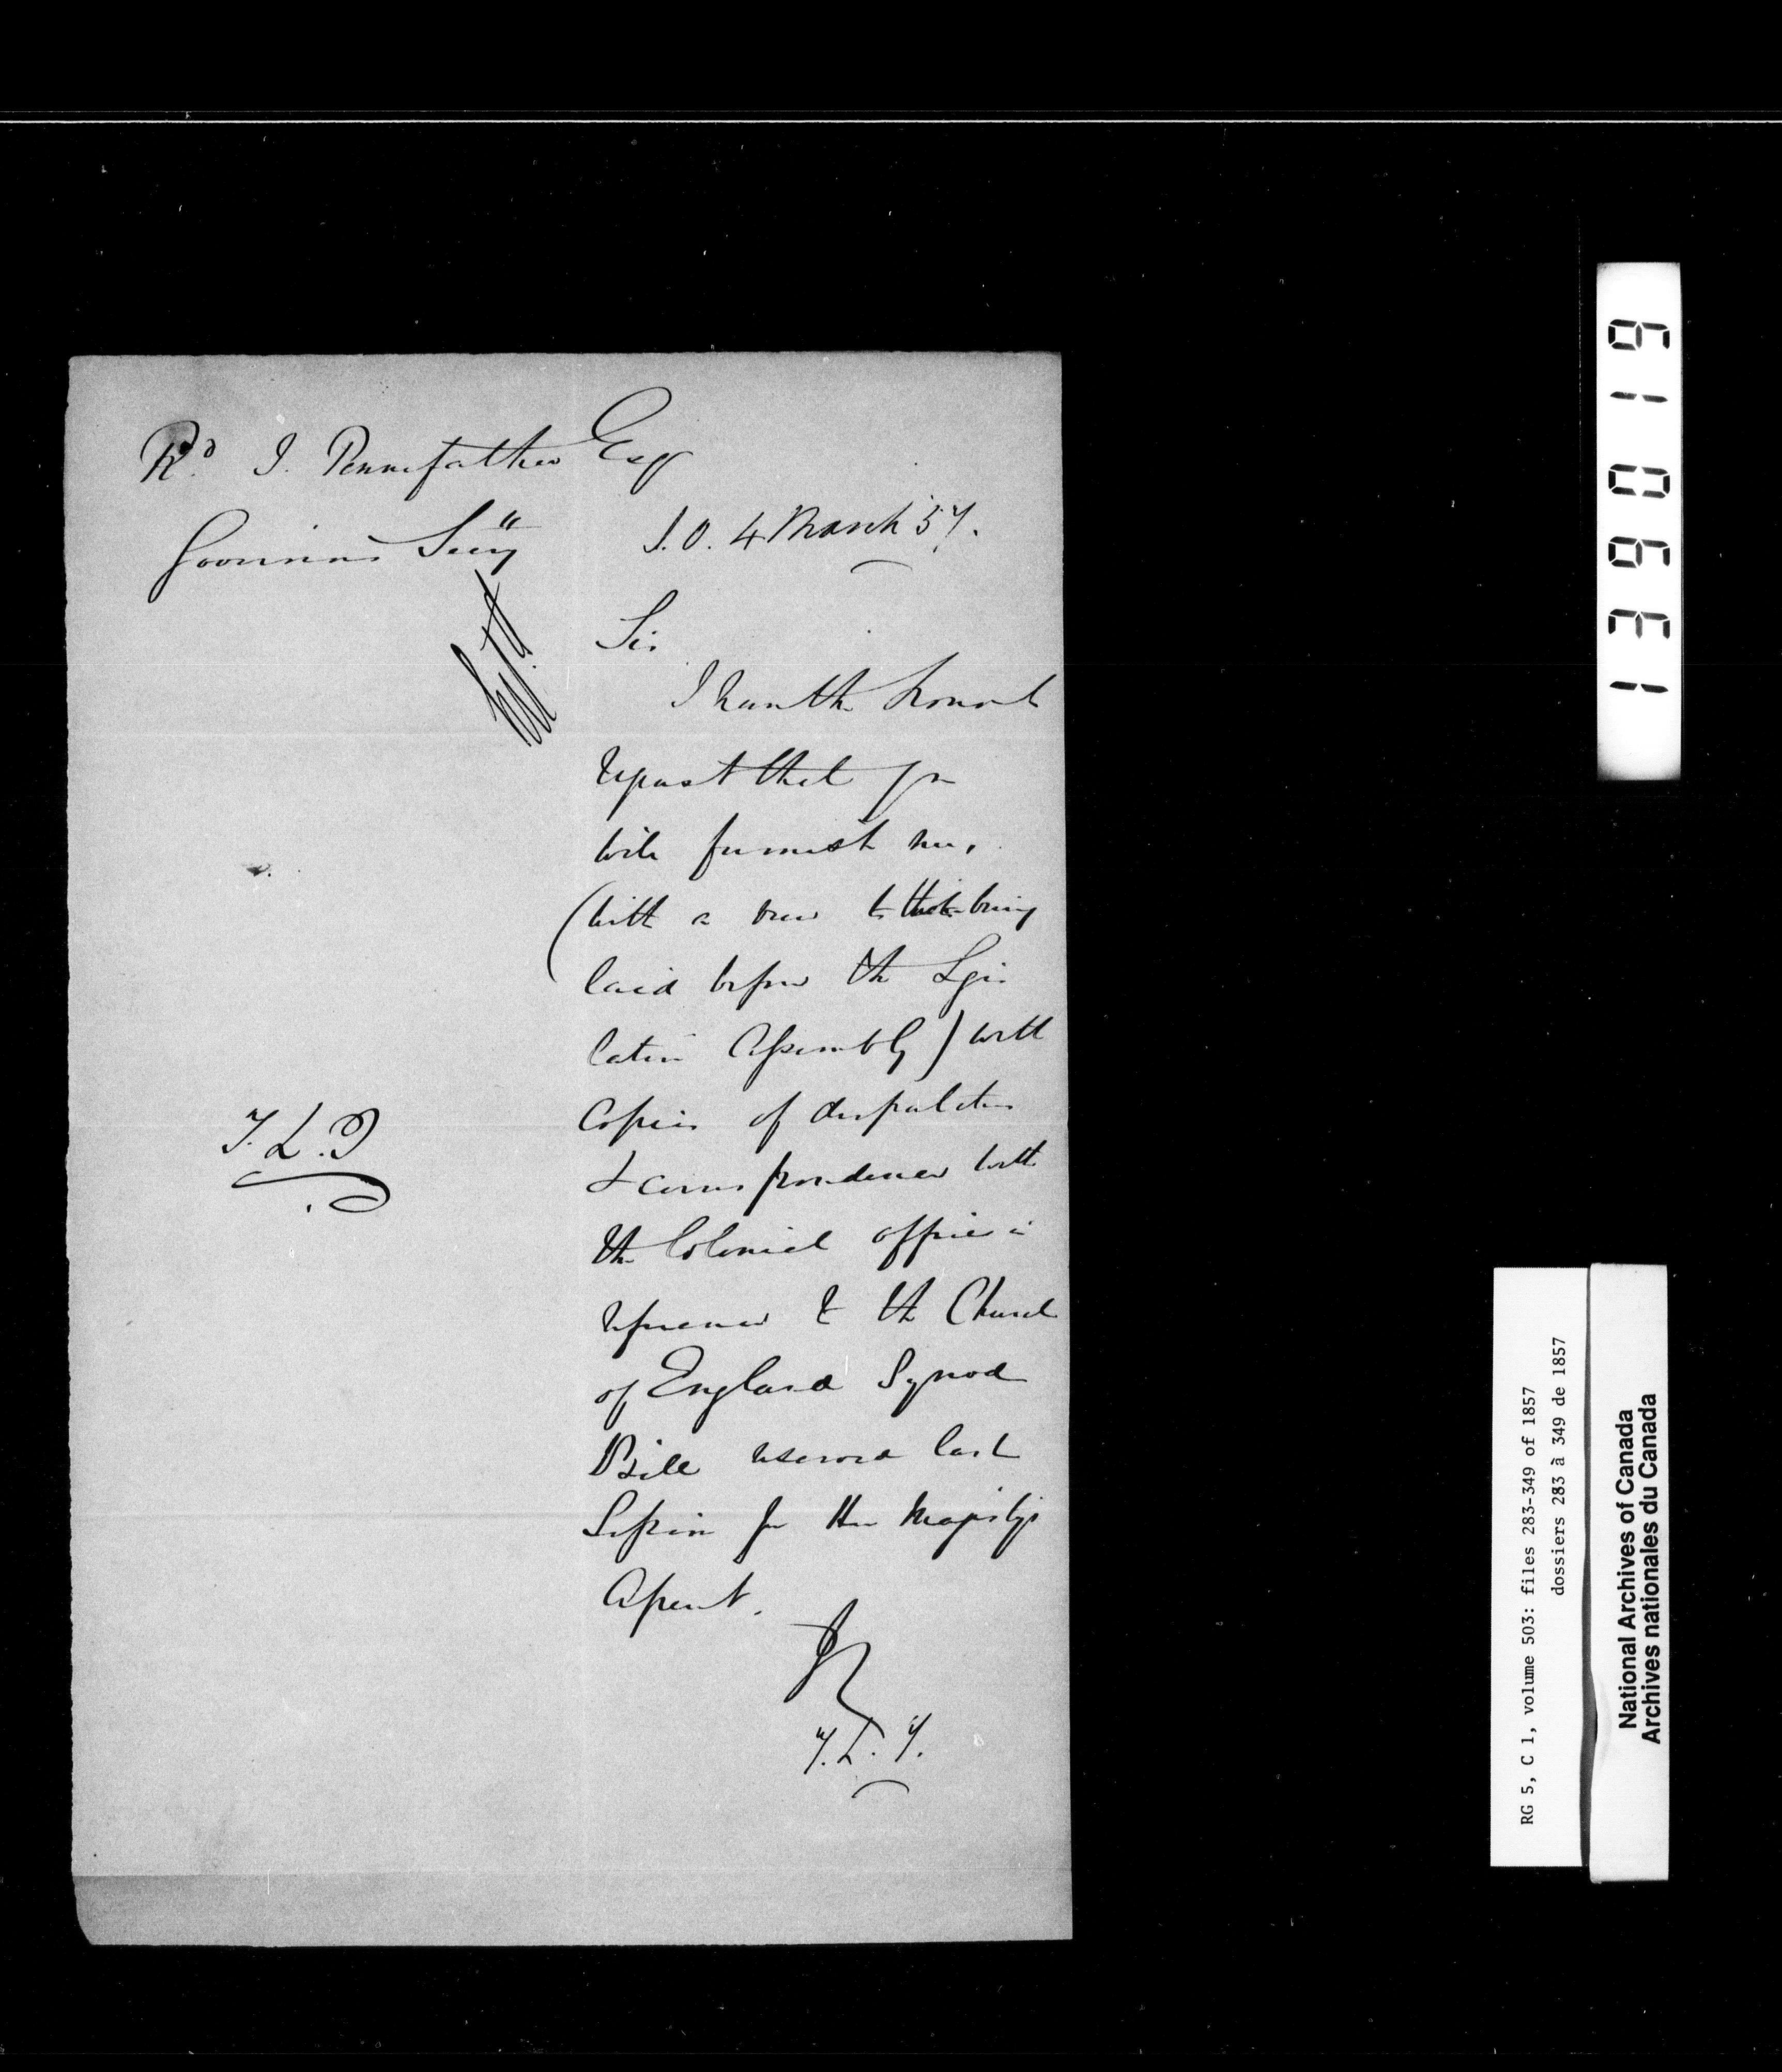 Rd. I. Pennefather Esqr
Governors Secy
S.O. 4 March 57.
Sir
I have the honor to
request that you
will furnish me,
(with a view to their being
laid before the Legis
lative Assembly) with
Copies of despatches
& correspondence with
the Colonial office in
reference to the Church
of England Synod
Bill reserved last
Session for Her Majestys
Assent.
T. L. T.
139019
RG 5, C 1, volume 503: files 283-349 of 1857
dossiers 283 à 349 de 1857
National Archives of Canada
Archives nationales du Canada